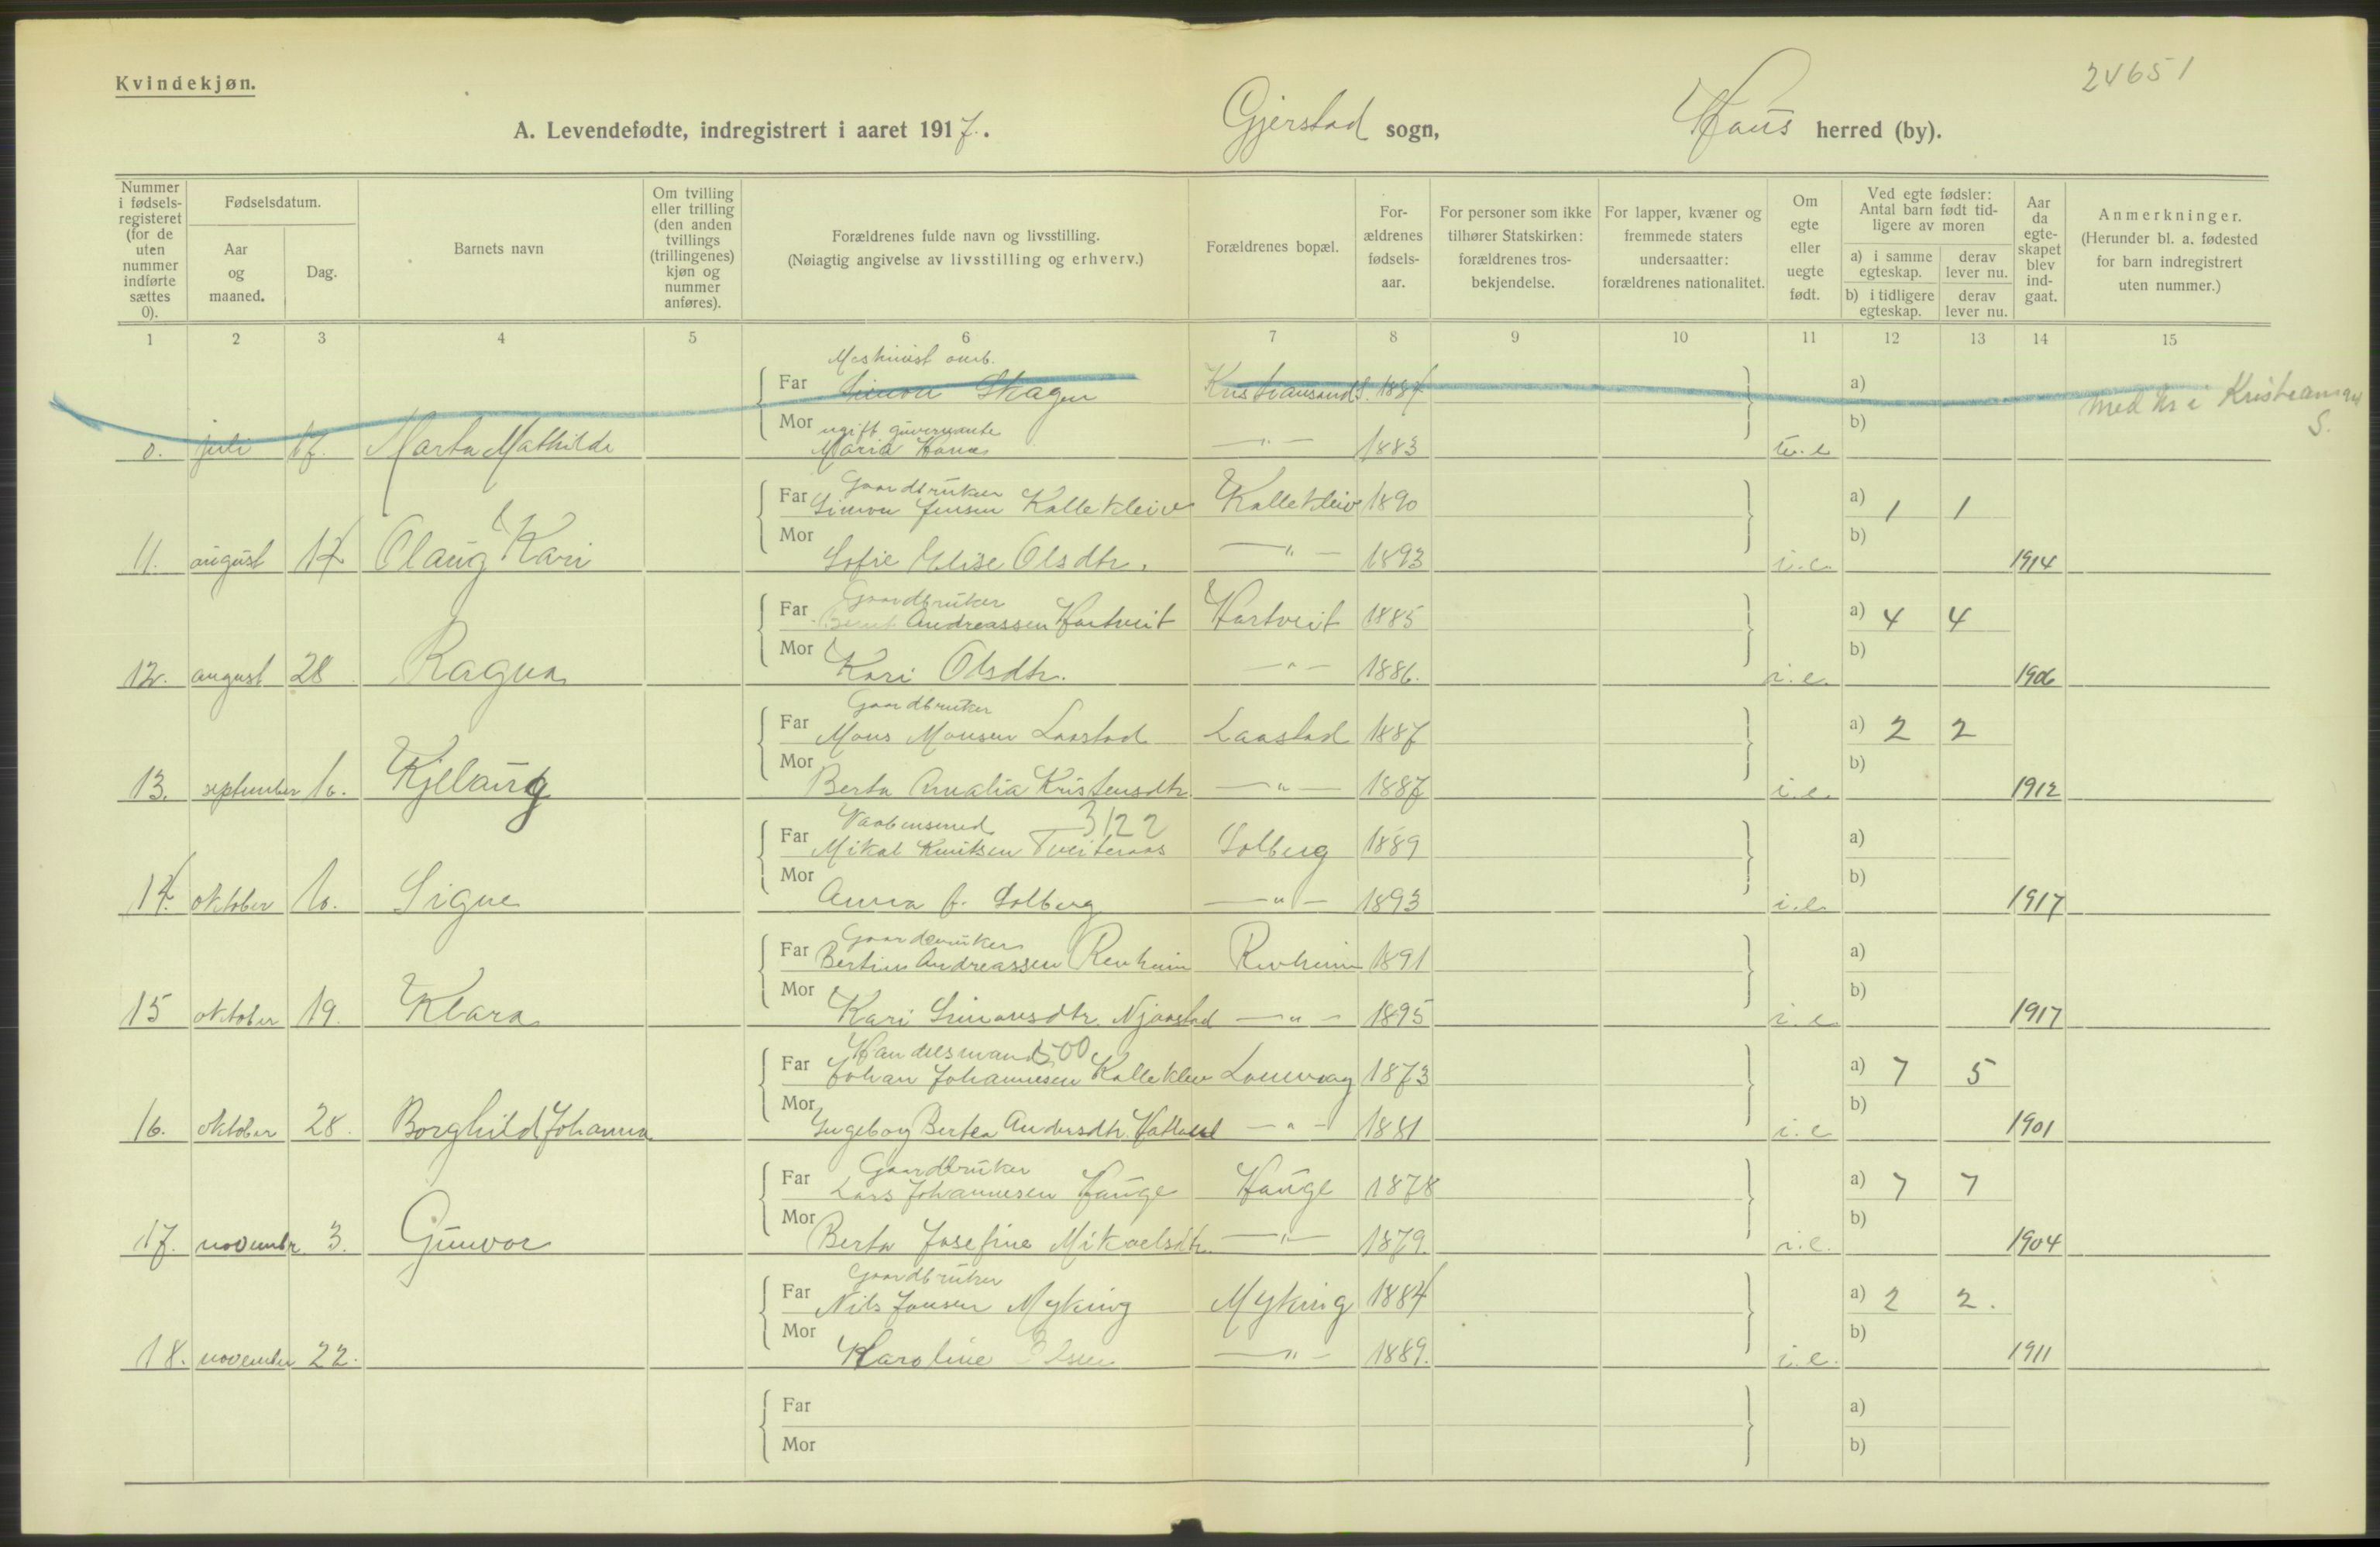 24651
Kvindekjøn.
A. Levendefødte, indregistrert i aaret 1917. Gjerstad sogn, Haus herred (by).
Nummer i fødsels-registeret (for de uten nummer indførte sættes 0).
Fødselsdatum.
Aar og maaned.
Dag.
Barnets navn
Om tvilling eller trilling (den anden tvillings (trillingenes) kjøn og nummer anføres).
Forældrenes fulde navn og livsstilling. (Nøiagtig angivelse av livsstilling og erhverv.)
Forældrenes bopæl.
For-ældrenes fødsels-aar.
For personer som ikke tilhører Statskirken: forældrenes tros-bekjendelse.
For lapper, kvæner og fremmede staters undersaatter: forældrenes nationalitet.
Om egte eller uegte født.
Ved egte fødsler: Antal barn født tid-ligere av moren
a) i samme egteskap.
derav lever nu.
b) i tidligere egteskap.
derav lever nu.
Aar da egte-skapet blev ind-gaat.
Anmerkninger. (Herunder bl. a. fødested for barn indregistrert uten nummer.)
1 2 3 4 5 6 7 8 9 10 11 12 13 14 15
Maskinist
Far Simon Skagen Kristiansand S. 1884 a)
med nr i Kristiansand S.
Mor ugift guvernante b)
0. juli 17. Marta Mathilde Maria —"— 1883 u.e
Gaardbruker
Far Simon Jensen Kallekleiv Kallekleiv 1890 a) 1 1
Mor b)
11. august 14 Olaug Kari Sofie Elise Olsdtr. —"— 1893 i.e. 1914
Gaardbruker
Far Bernt Andreassen Hartveit Hartveit 1885 a) 4 4
Mor b)
12. august 28 Ragna Kari Olsdtr. —"— 1886. i.e. 1906
Gaardbruker
Far Mons Monsen Laastad Laastad 1887 a) 2 2
Mor b)
13. september 10. Kjellaug Berta Amalia Kristensdtr. —"— 1887 i.e. 1912
Vaabensmed 3122
Far Mikal Knutsen Tveiteraas Solberg 1889 a)
Mor b)
14. oktober 10. Signe Anna f. Solberg —"— 1893 i.e. 1917
Gaardbruker
Far Bertin Andreassen Revheim Revheim 1891 a)
Mor b)
15 oktober 19. Klara Kari Simonsdtr. Njaastad —"— 1895 i.e. 1917
Handelsmand 500
Far Johan Johannesen Kalleklev Lonevaag 1873 a) 7 5
Mor b)
16. oktober 28. Borghild Johanna Ingeborg Berta Andersdtr. —"— 1881 i.e 1901
Gaardbruker
Far Lars Johannesen Hauge Hauge 1878 a) 7 7
Mor b)
17. novembr. 3. Gunvor Berta Josefine Mikaelsdtr. —"— 1879. i.e. 1904
Gaardbruker
Far Nils Jonsen Myking Myking 1884 a) 2 2.
Mor b)
18. november 22. Karoline —"— 1889. i.e. 1911
Far a)
Mor b)